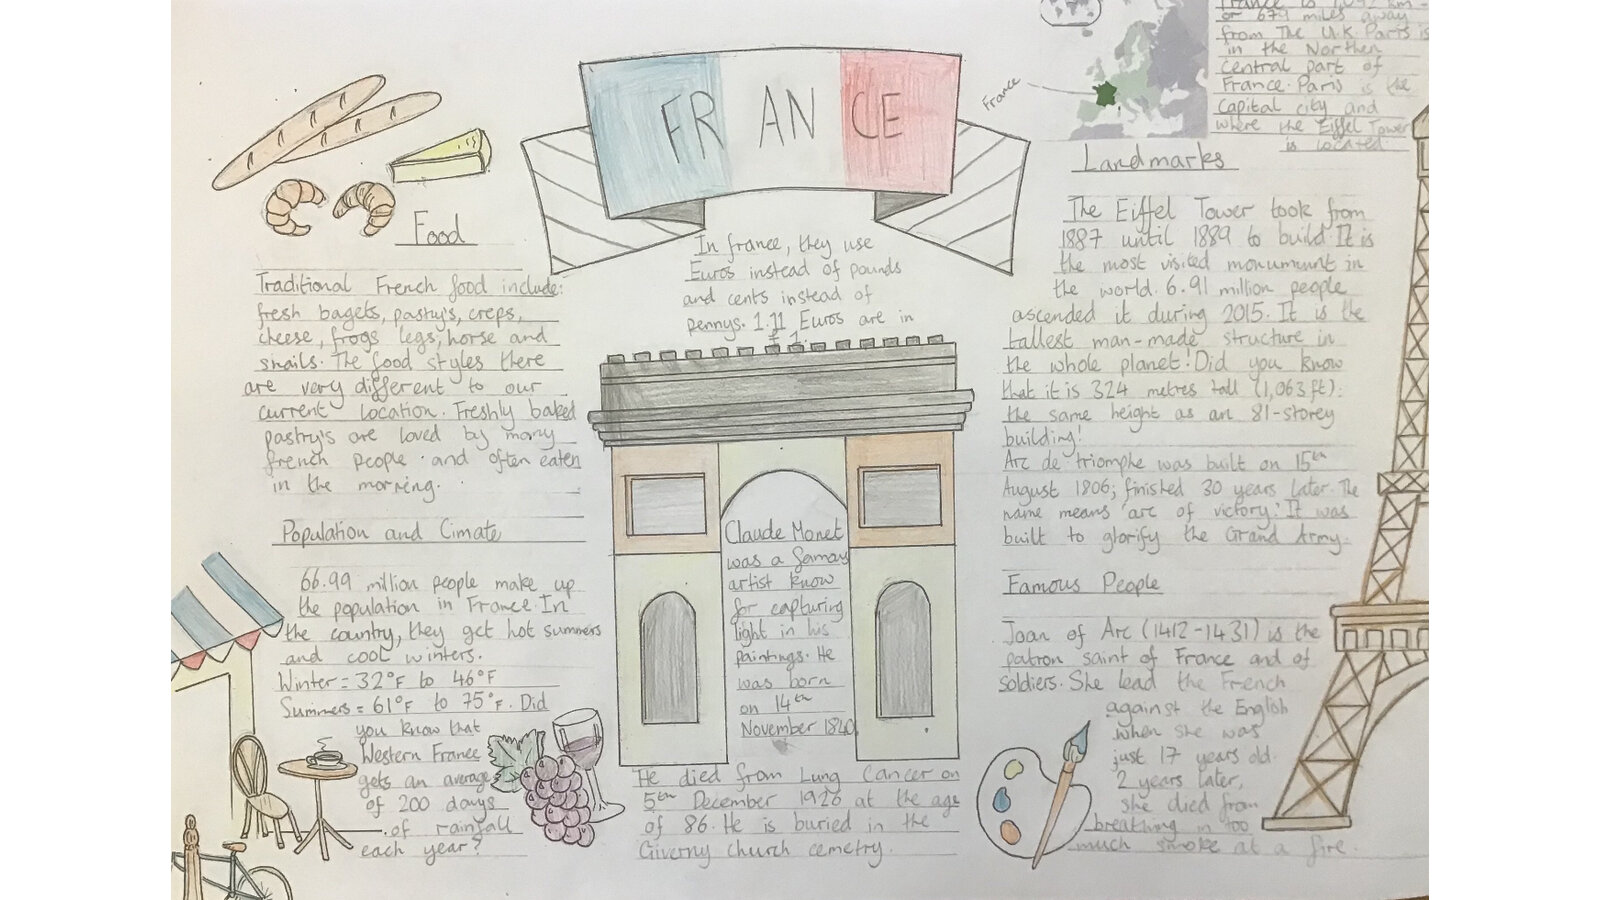 FRANCE
France
or 679 miles away
from The U.K. Paris is
in the Northen
central part of
France. Paris is the
capital city and
where the Eiffel Tower
is located
Food
Traditional French food include:
fresh bagets, pastry's, creps,
cheese, frogs legs, horse and
snails. The food styles there
are very different to our
current location. Freshly baked
pastry's are loved by many
french people and often eaten
in the morning.
Population and Cimate
66.99 million people make up
the population in France. In
the country, they get hot summers
and cool winters.
Winter = 32°F to 46°F
Summers = 61°F to 75°F. Did
you know that
Western France
gets an average
of 200 days
of rainfall
each year?
In france, they use
Euros instead of pounds
and cents instead of
pennys. 1.11 Euros are in
£1.
Claude Monet
was a famous
artist know
for capturing
light in his
paintings. He
was born
on 14th
November 1840
He died from Lung Cancer on
5th December 1926 at the age
of 86. He is buried in the
Giverny church cemetry.
Landmarks
The Eiffel Tower took from
1887 until 1889 to build. It is
the most visited monumunt in
the world. 6.91 million people
ascended it during 2015. It is the
tallest man-made structure in
the whole planet! Did you know
that it is 324 metres tall (1,063 ft):
the same height as an 81-storey
building!
Arc de triomphe was built on 15th
August 1806; finished 30 years later. The
name means 'arc of victory'. It was
built to glorify the Grand Army.
Famous People
Joan of Arc (1412-1431) is the
patron saint of France and of
soldiers. She lead the French
against the English
when she was
just 17 years old.
2 years later,
she died from
breathing in too
much smoke at a fire.